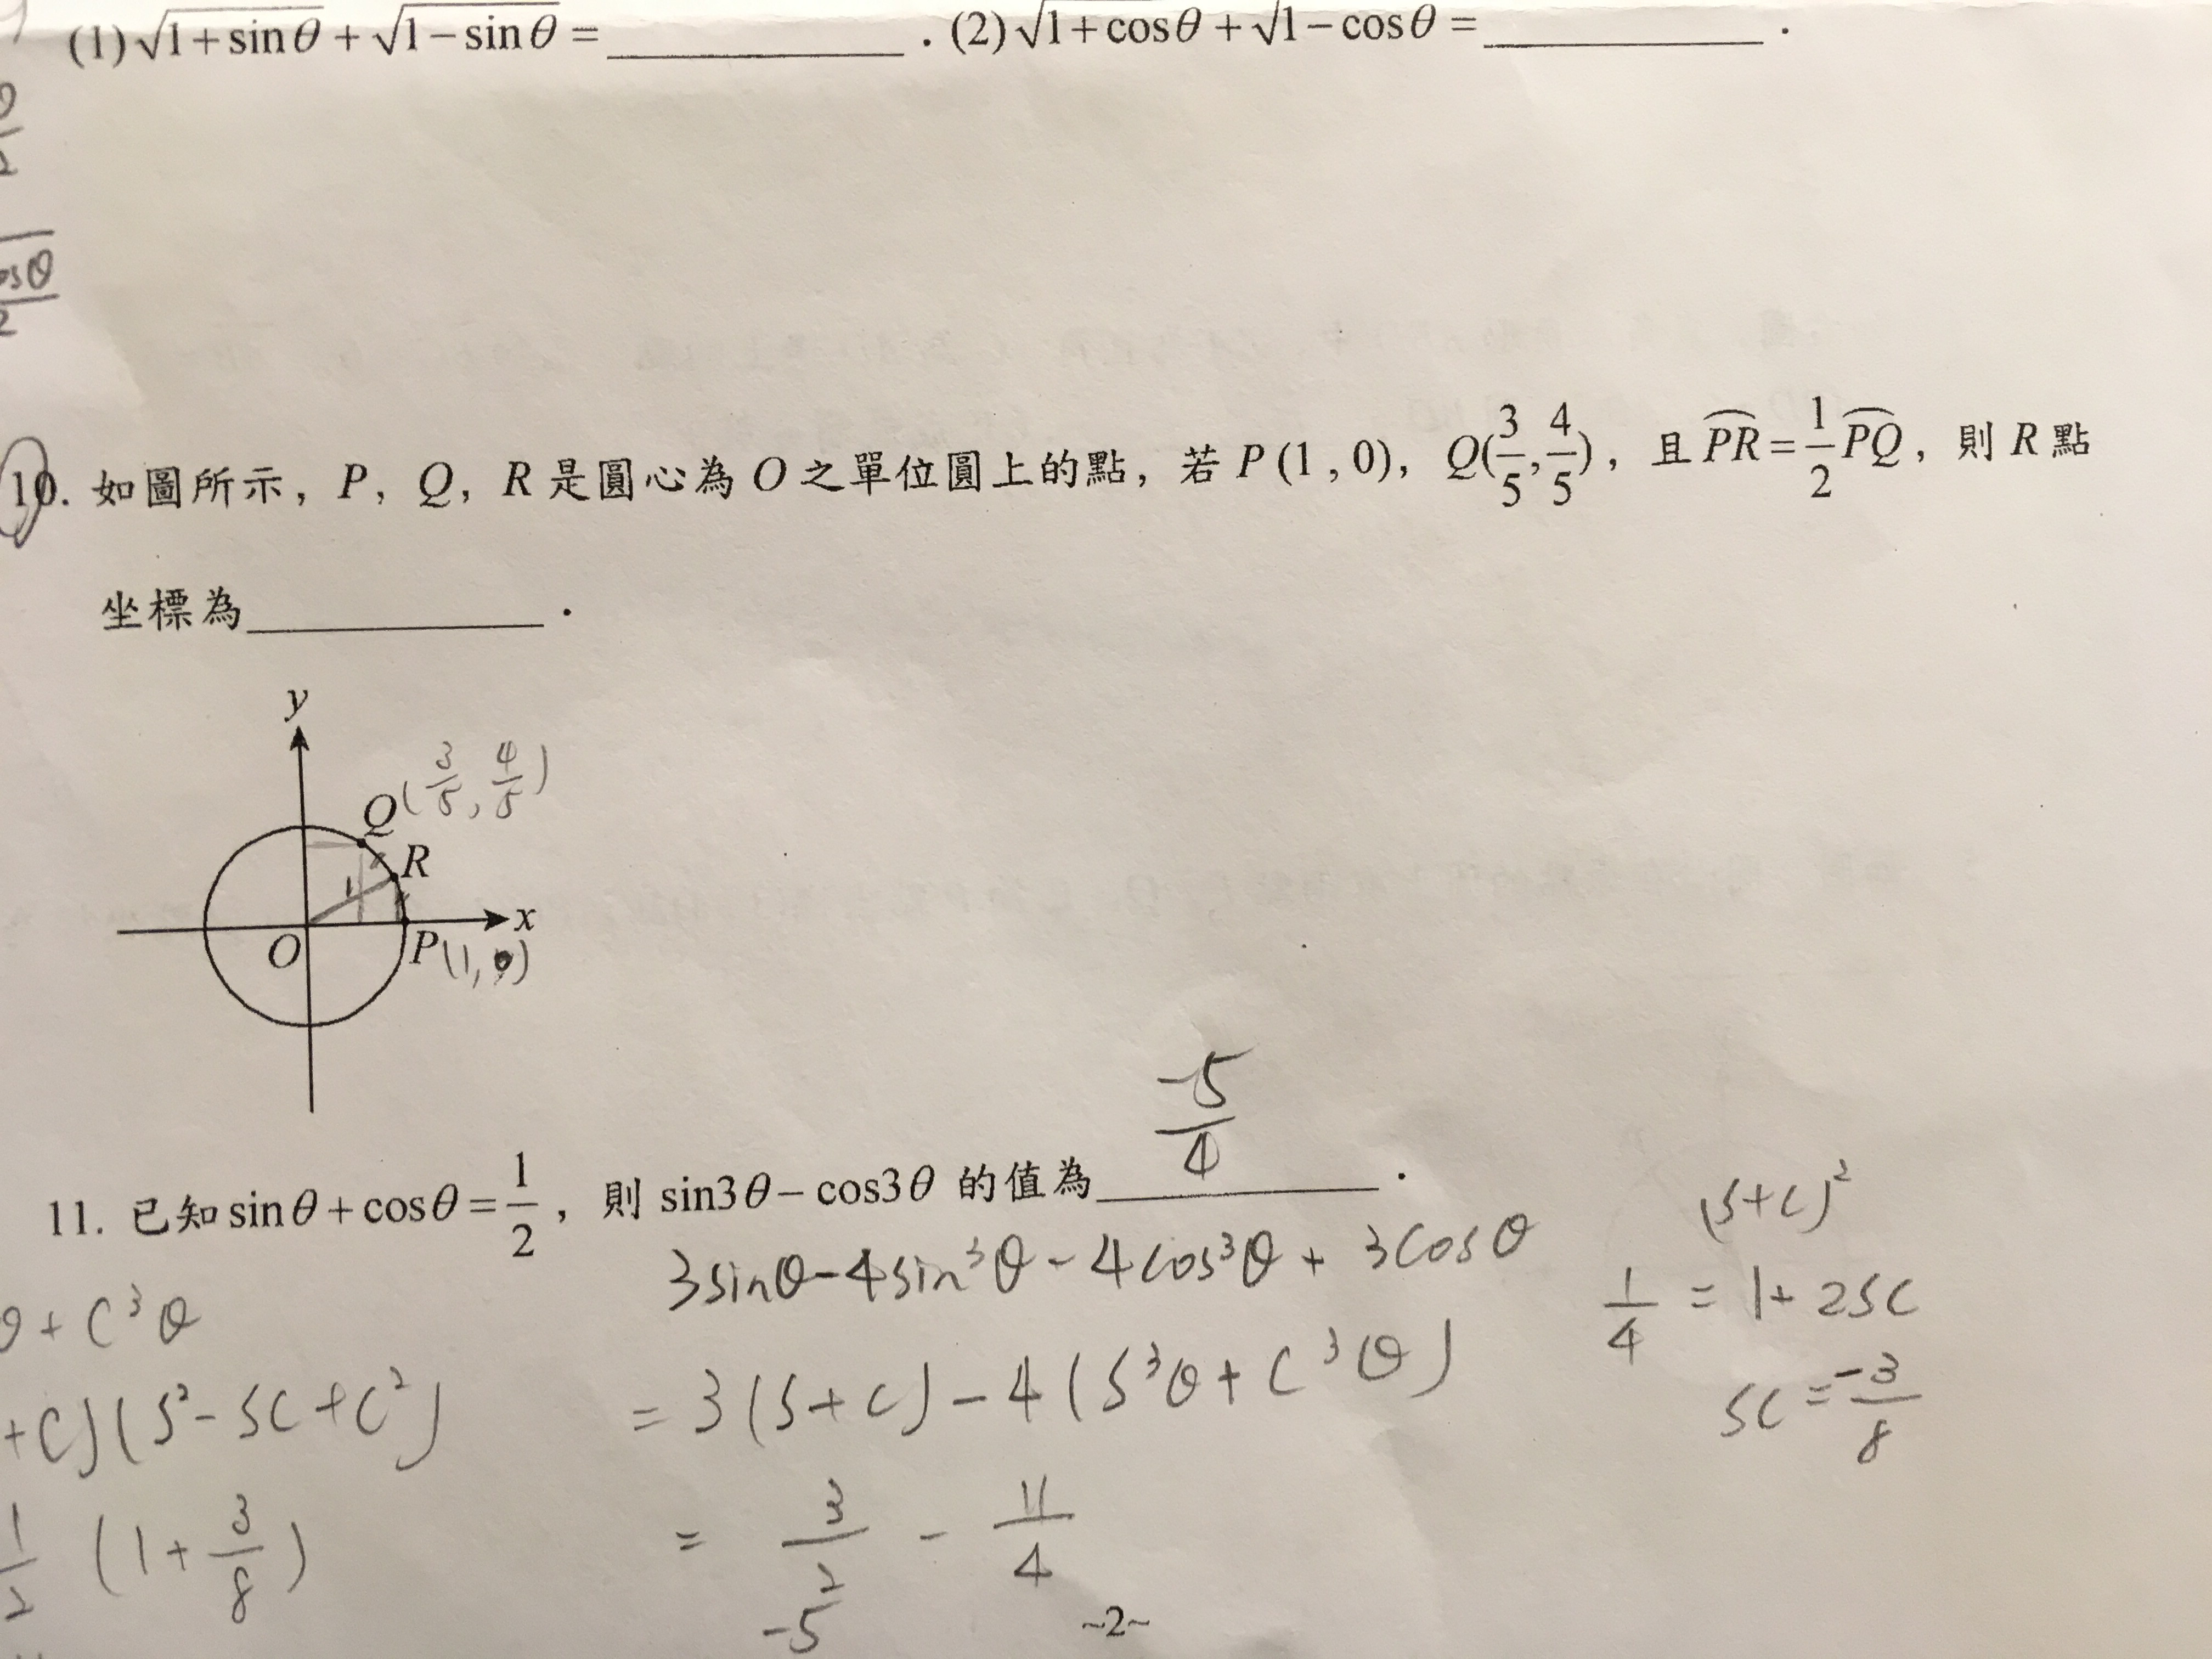 (1)√(1+sinθ) + √(1−sinθ) = ________ . (2)√(1+cosθ) + √(1−cosθ) = ________ .
θ/2
osθ/2
10. 如圖所示，P，Q，R 是圓心為 O 之單位圓上的點，若 P(1 , 0)，Q(3/5, 4/5)，且 P͡R = 1/2 P͡Q，則 R 點
坐標為________ .
y
Q(3/5, 4/5)
R
1
x
O
P(1,0)
-5/4
11. 已知 sinθ + cosθ = 1/2，則 sin3θ − cos3θ 的值為________ .
(s+c)²
3sinθ-4sin³θ-4cos³θ+3cosθ
1/4 = 1+2sc
θ+c³θ
=3(s+c)-4(s³θ+c³θ)
sc=-3/8
+c)(s²-sc+c²)
= 3/2 - 11/4
1/2 (1+3/8)
-5
~2~